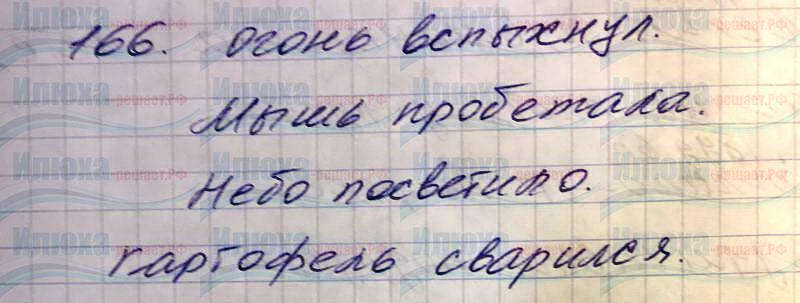 166. Огонь вспыхнул.
Мышь пробежала.
Небо посветило.
Картофель сварился.